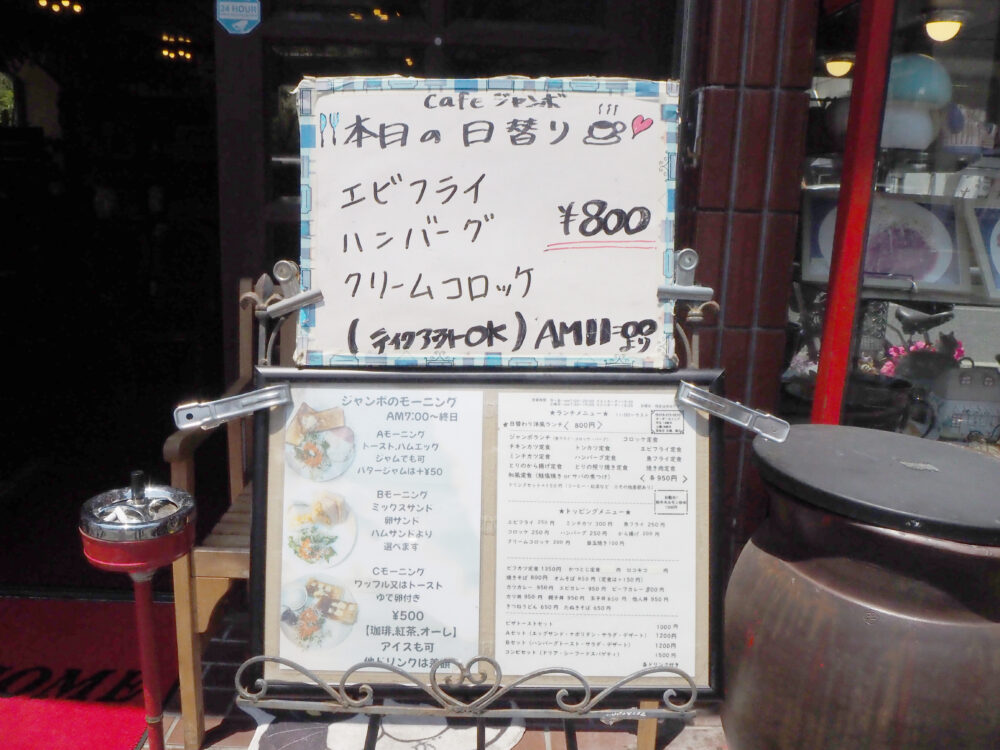 24 HOUR
Cafe ジャンボ
本日の日替り
エビフライ
ハンバーグ
¥800
クリームコロッケ
(テイクアウトOK) AM11:00より
ジャンボのモーニング
AM7:00〜終日
Aモーニング
トースト,ハムエッグ
ジャムでも可
バタージャムは+¥50
Bモーニング
ミックスサンド
卵サンド
ハムサンドより
選べます
Cモーニング
ワッフル又はトースト
ゆで卵付き
¥500
【珈琲,紅茶,オーレ】
アイスも可
他ドリンクは差額
★ランチメニュー★
★日替わり洋風ランチ〈 800円 〉
ジャンボランチ コロッケ定食
チキンカツ定食 トンカツ定食 エビフライ定食
ミンチカツ定食 ハンバーグ定食 魚フライ定食
とりのから揚げ定食 とりの照り焼き定食 焼き肉定食
和風定食(鮭塩焼き or サバの煮つけ) 〈 各950円 〉
★トッピングメニュー★
エビフライ 250円 ミンチカツ 300円 魚フライ 250円
コロッケ 250円 ハンバーグ 250円 から揚げ 300円
クリームコロッケ 200円 目玉焼き 100円
ビフカツ定食 1350円 かつとじ定食 円 ロコモコ 円
焼きそば 800円 オムそば 850円 (定食は+150円)
カツカレー 950円 エビカレー 950円 ビーフカレー 800円
カツ丼 950円 親子丼 850円 玉子丼 850円 他人丼 950円
きつねうどん 650円 たぬきそば 650円
ピザトーストセット 1000円
Aセット(エッグサンド・ナポリタン・サラダ・デザート) 1200円
Bセット(ハンバーグトースト・サラダ・デザート) 1200円
コンビセット(ドリア・シーフードスパゲティ) 1500円
各ドリンク付き
HOME